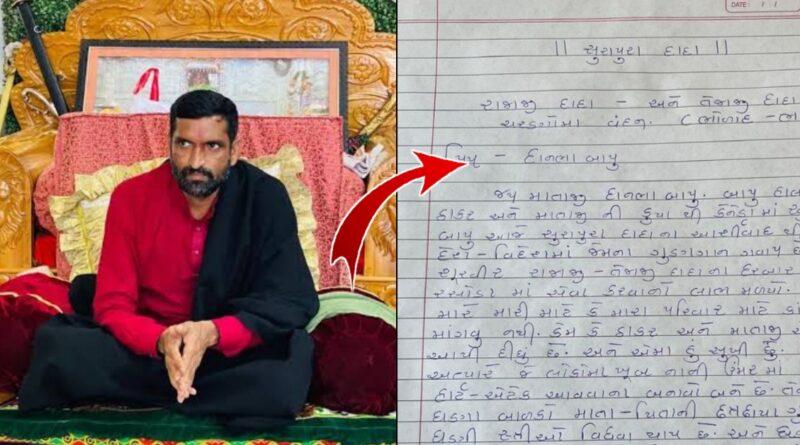 DATE: / /
|| સુરાપુરા દાદા ||
રાજાજી દાદા - અને તેજાજી દાદા
ચરણોમાં વંદન. ( ભોળાદ - ભા
પ્રિય - દાનભા બાપુ
જય માતાજી દાનભા બાપુ. બાપુ હાલ
ઠાકર અને માતાજી ની કૃપા થી કેનેડા માં
બાપુ આજે સુરાપુરા દાદાના આશીર્વાદ થી
દેશ - વિદેશમાં જેમના ગુણગાન ગવાય છે
શૂરવીર રાજાજી - તેજાજી દાદાના દરબાર
રસોડા માં સેવા કરવાનો લાભ મળ્યો.
મારે મારી માટે કે મારા પરિવાર માટે કાં
માંગવુ નથી. કેમ કે ઠાકર અને માતાજી એ
આપી દીધું છે. અને એમાં હું સુખી છું.
અત્યારે જે લોકોમાં ખૂબ નાની ઉંમર માં
હાર્ટ - એટેક આવવાના બનાવો બને છે.
ઘણા બાળકો માતા - પિતાની છત્રછાયા ગુ
ઘણી સ્ત્રીઓ વિધવા થાય છે. અને